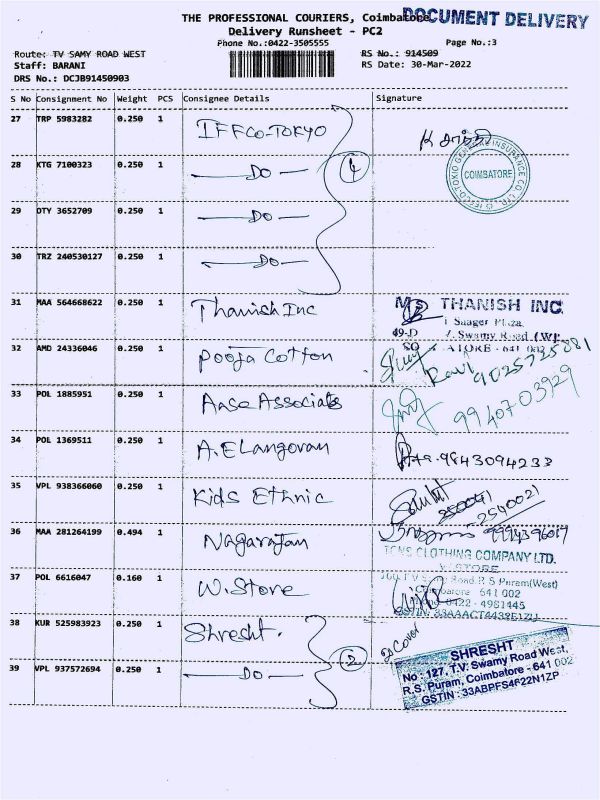 THE PROFESSIONAL COURIERS, Coimbatore
DOCUMENT DELIVERY
Delivery Runsheet - PC2
Phone No.:0422-3505555
Page No.:3
Route: TV SAMY ROAD WEST
RS No.: 914509
Staff: BARANI
RS Date: 30-Mar-2022
DRS No.: DCJB91450903
S No Consignment No Weight PCS Consignee Details Signature
27 TRP 5983282 0.250 1 IFFCO-TOKYO
28 KTG 7100323 0.250 1 Do 4
COIMBATORE
29 OTY 3652709 0.250 1 Do
30 TRZ 240530127 0.250 1 Do
31 MAA 564668622 0.250 1 Thanish Inc
THANISH INC
Saager Plaza
Swamy Road (W)
32 AMD 24336046 0.250 1 Pooja Cotton
Ravi 9025725081
33 POL 1885951 0.250 1 Aase Associates
9940703929
34 POL 1369511 0.250 1 A. Elangovan
9843094233
35 VPL 938366060 0.250 1 Kids Ethnic
2540021
36 MAA 281264199 0.494 1 Nagarajan
TCNS CLOTHING COMPANY LTD.
37 POL 6616047 0.160 1 W. Store
Road R S Puram(West)
641 002
0422 - 4981445
38 KUR 525983923 0.250 1 Shresht.
2 Cover
39 VPL 937572694 0.250 1 Do 2
SHRESHT
No : 127, T.V. Swamy Road West,
R.S. Puram, Coimbatore - 641 002
GSTIN : 33ABPFS4F22N1ZP